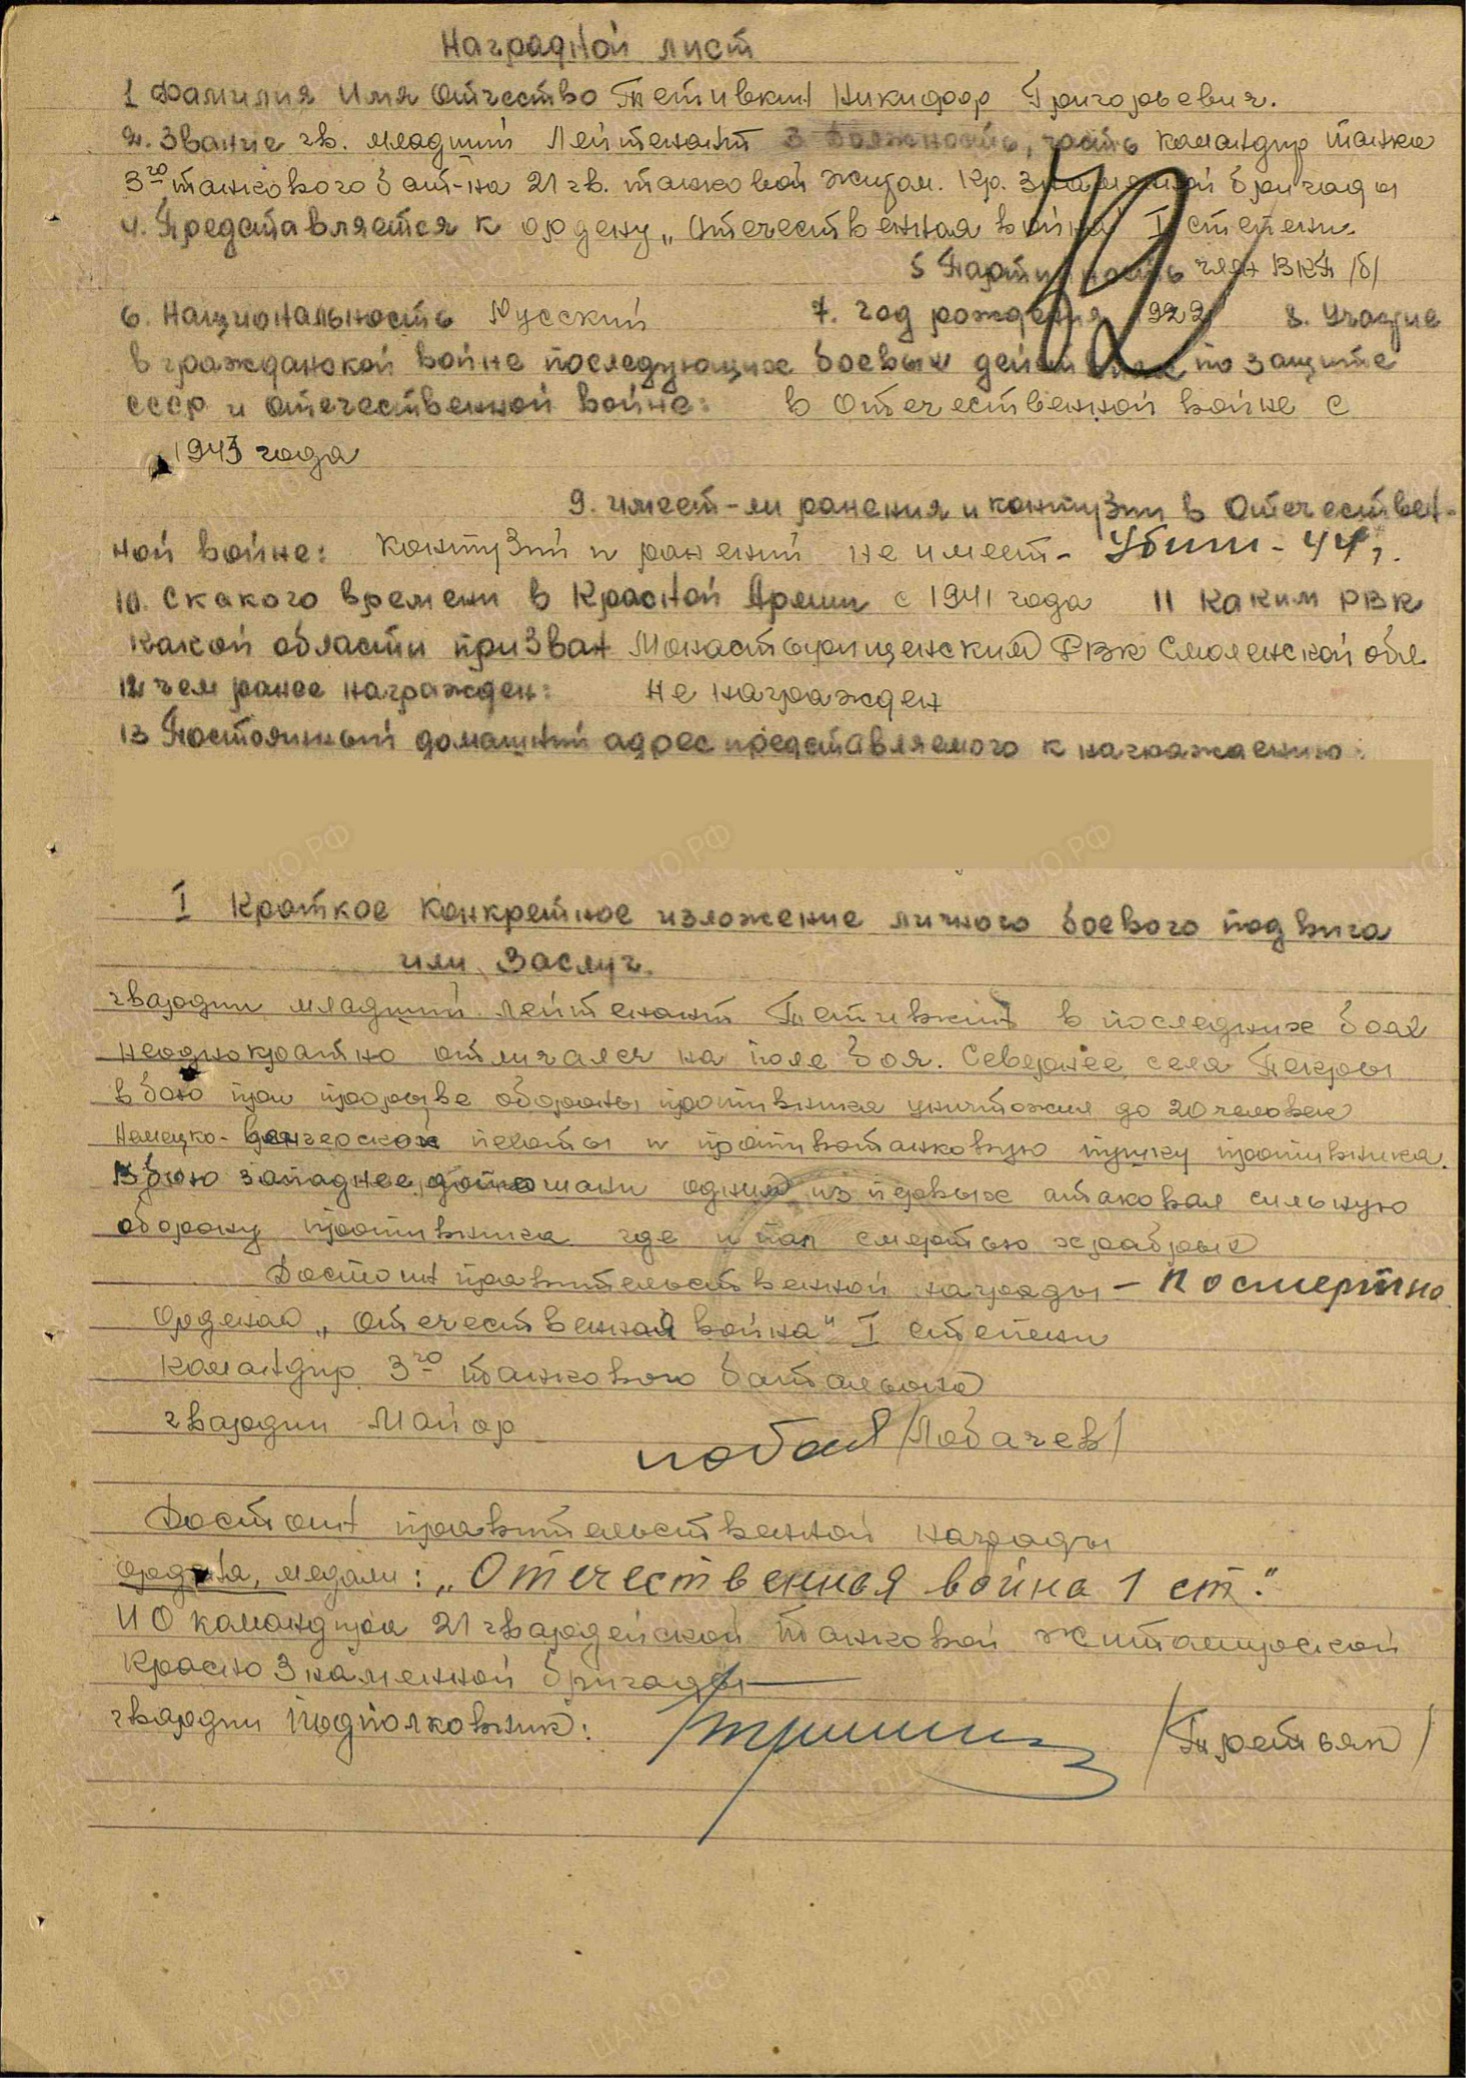 Наградной лист
1 Фамилия Имя Отчество Тетивкин Никифор Григорьевич.
2. Звание гв. младший Лейтенант 3 Должность, часть командир танка
3го танкового бат-на 21 гв. танковой Житом. Кр. Знаменной бригады
4. Представляется к ордену „Отечественная война" I степени.
5 Партийность член ВКП /б/
6. Национальность Русский 7. год рождения 1922 8. Участие
в гражданской войне последующих боевых действиях по защите
СССР и отечественной войне: в Отечественной войне с
1943 года
9. имеет-ли ранения и контузии в Отечествен-
ной войне: контузий и ранений не имеет - Убит - 44 г.
10. С какого времени в Красной Армии с 1941 года 11 каким РВК
какой области призван Монастырщенским РВК Смоленской обл
12 чем ранее награжден: не награжден
13 Постоянный домашний адрес представляемого к награждению:
I Краткое конкретное изложение личного боевого подвига
или заслуг.
гвардии младший лейтенант Тетивкин в последних боях
неоднократно отличался на поле боя. Севернее села
в бою при прорыве обороны противника уничтожил до 20 человек
немецко-венгерской пехоты и противотанковую пушку противника.
В бою западнее одним из первых атаковал сильную
оборону противника где и пал смертью храбрых
Достоин правительственной награды - посмертно
орденом „Отечественная война" I степени
Командир 3го танкового батальона
гвардии Майор /Лобачев/
Достоин правительственной награды
ордена, медали: „Отечественная война 1 ст."
И О командира 21 гвардейской танковой Житомирской
Краснознаменной бригады
гвардии подполковник: /Третьяк/
ЦАМО РФ